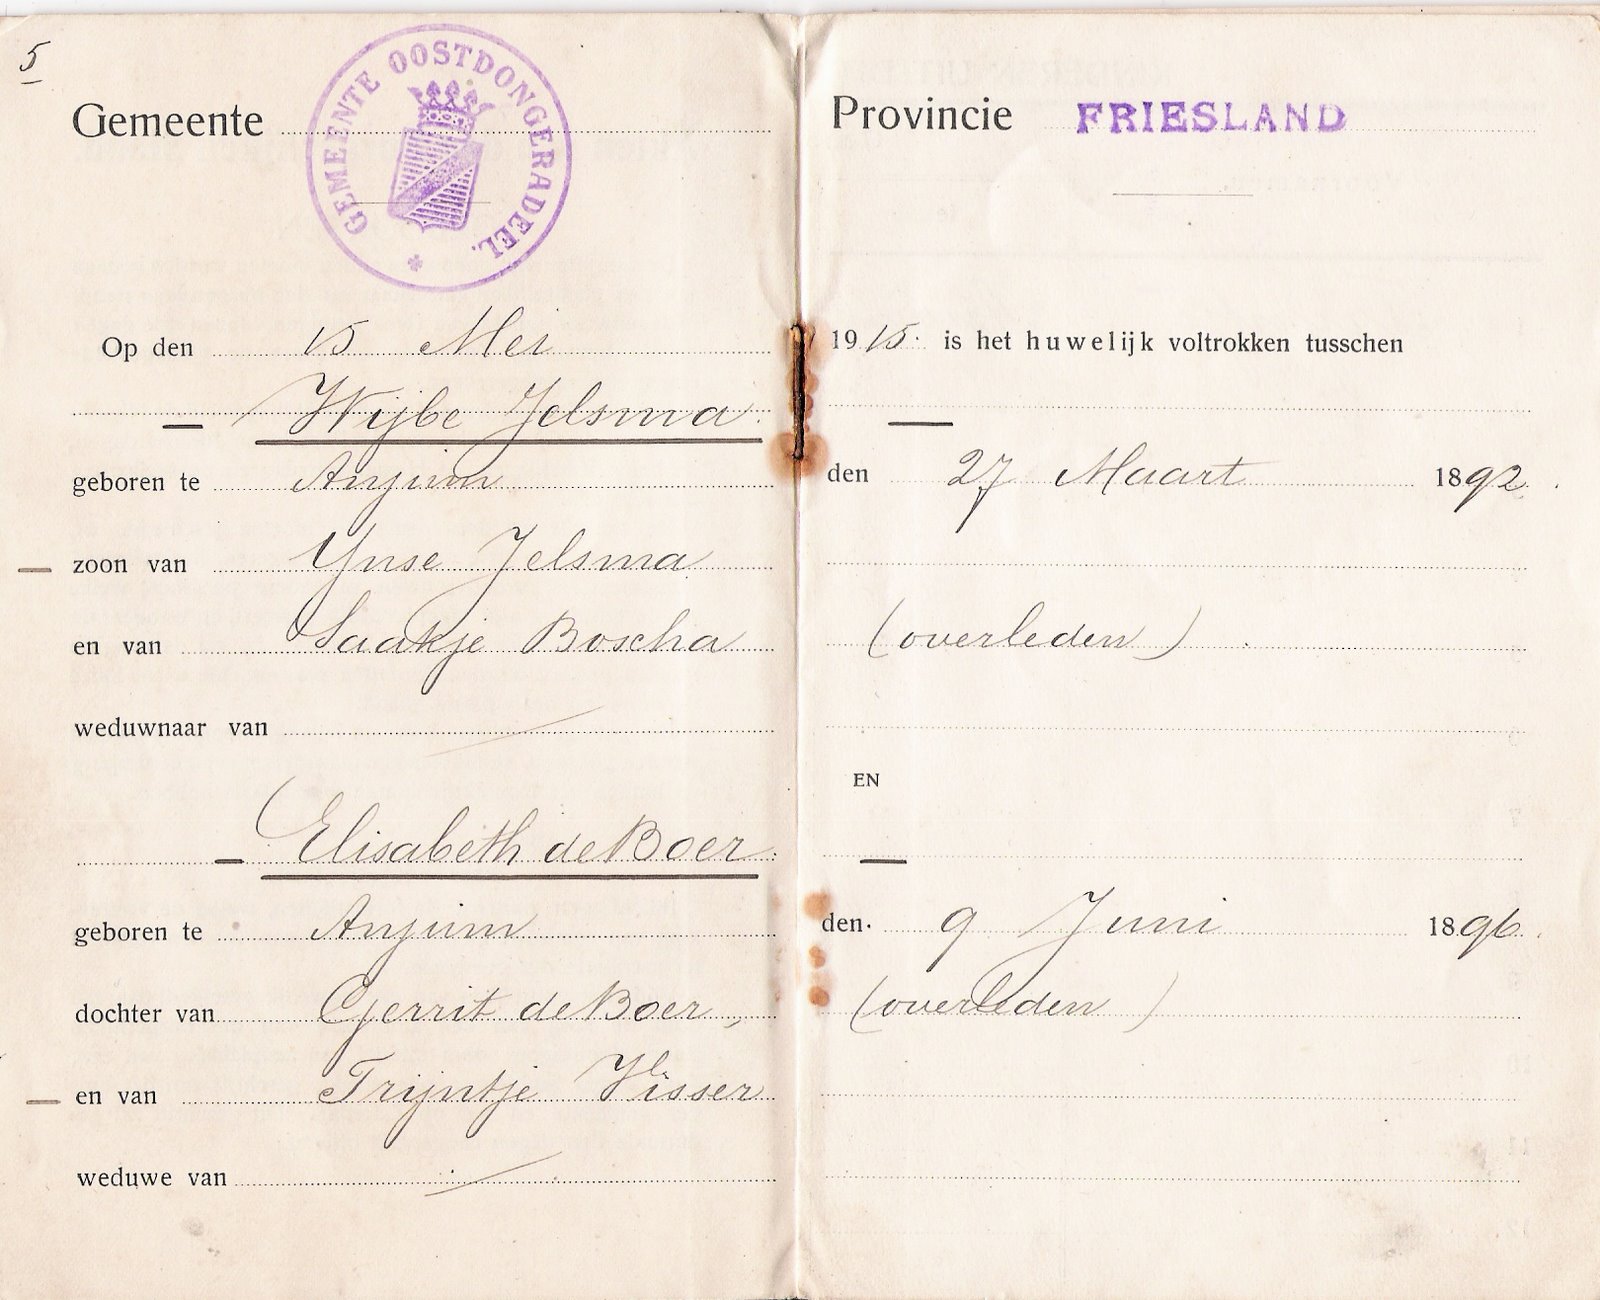 5
GEMEENTE OOSTDONGERADEEL.
Gemeente
Provincie FRIESLAND
Op den 15 Mei 1915. is het huwelijk voltrokken tusschen
Wijbe Jelsma
geboren te Anjum den 27 Maart 1892.
zoon van Ynse Jelsma
en van Saakje Boscha (overleden)
weduwnaar van
EN
Elisabeth de Boer
geboren te Anjum den 9 Juni 1896.
dochter van Gerrit de Boer, (overleden)
en van Trijntje Visser
weduwe van